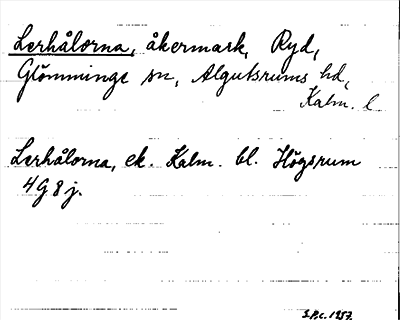 Lerhålorna, åkermark, Ryd,
Glömminge sn, Algutsrums hd,
Kalm. l
Lerhålorna, ek. Kalm. bl. Högsrum
4G 8j.
S.P.c. 1957.